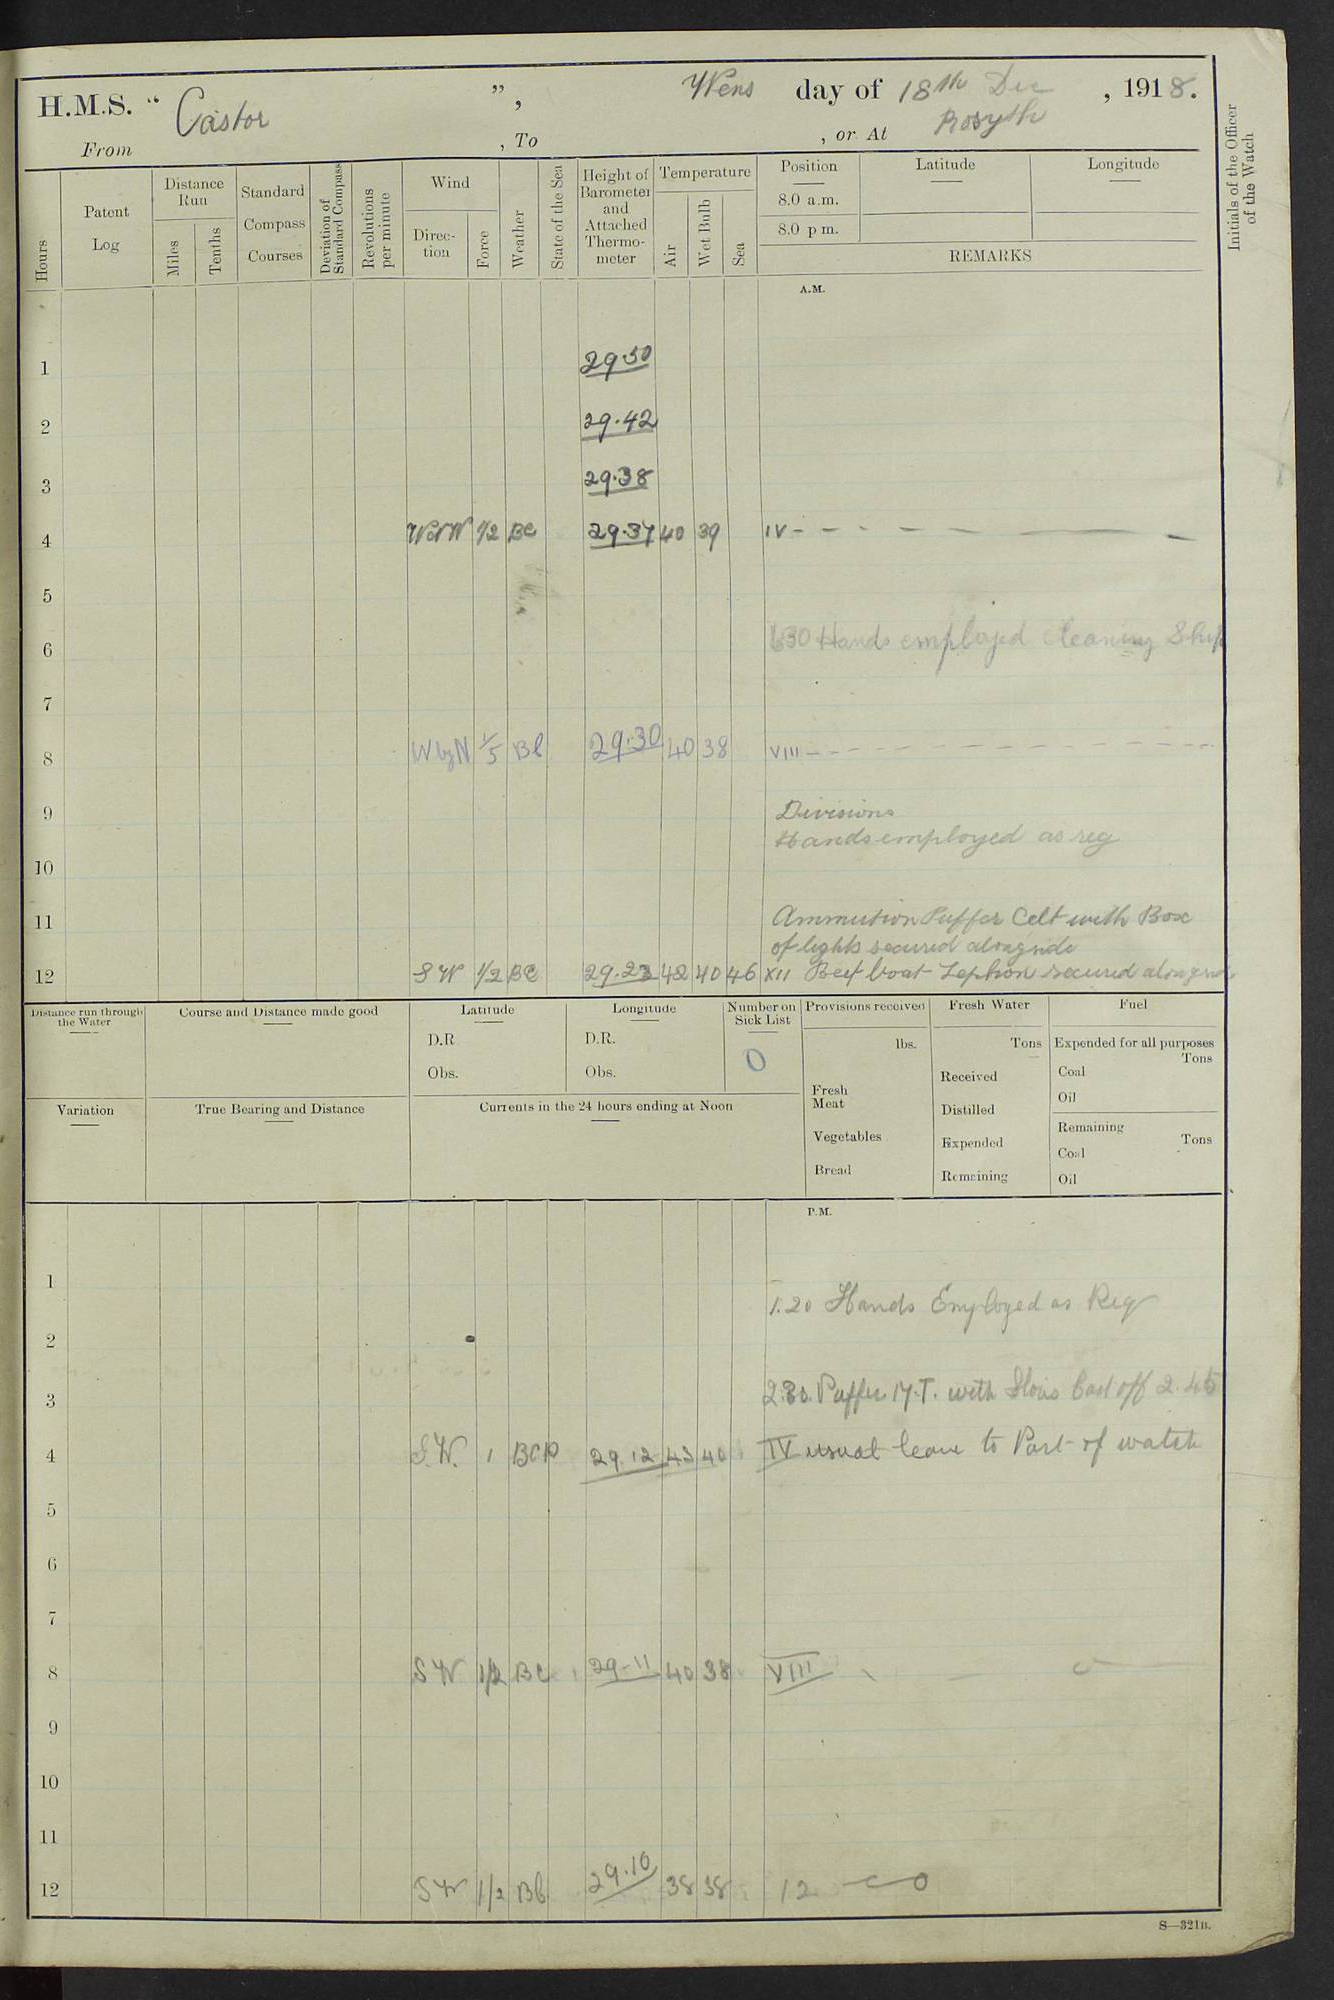 H.M.S. " Castor ", Wens day of 18th Dec , 1918.
From , To , or At Rosyth
Initials of the Officer of the Watch
Hours
Patent Log
Distance Run
Miles Tenths
Standard Compass Courses
Deviation of Standard Compass
Revolutions per minute
Wind
Direc-tion Force
Weather
State of the Sea
Height of Barometer and Attached Thermo-meter
Temperature
Air Wet Bulb Sea
Position Latitude Longitude
8.0 a.m.
8.0 p m.
REMARKS
A.M.
1 29.50
2 29.42
3 29.38
4 WNW 1/2 BC 29.37 40 39 IV - - - - - - -
5
630 Hands employed cleaning Ship
6
7
8 W by N 1/5 29.30 40 38 VIII - - - - - -
9 Divisions
Hands employed as reg
10
11 Ammution Puffer Celt with Box
of lights secured alongside
12 SW 1/2 BC 29.23 42 40 46 XII Beef boat secured alongside
Distance run through the Water
Course and Distance made good
Latitude Longitude
D.R D.R.
Obs. Obs.
Number on Sick List
0
Provisions received
lbs.
Fresh Meat
Vegetables
Bread
Fresh Water
Tons
Received
Distilled
Expended
Remaining
Fuel
Expended for all purposes
Tons
Coal
Oil
Remaining
Tons
Coal
Oil
Variation
True Bearing and Distance
Currents in the 24 hours ending at Noon
P.M.
1 1.20 Hands Employed as Reg
2
3 2.30. Puffer with Cast off 2.45
4 S.W. 1 BCP 29.12 43 40 IV usual leave to Part of watch
5
6
7
8 SW 1/2 BC 29-11 40 38 VIII
9
10
11
12 SW 1/2 29.10 38 38 12
S—321B.